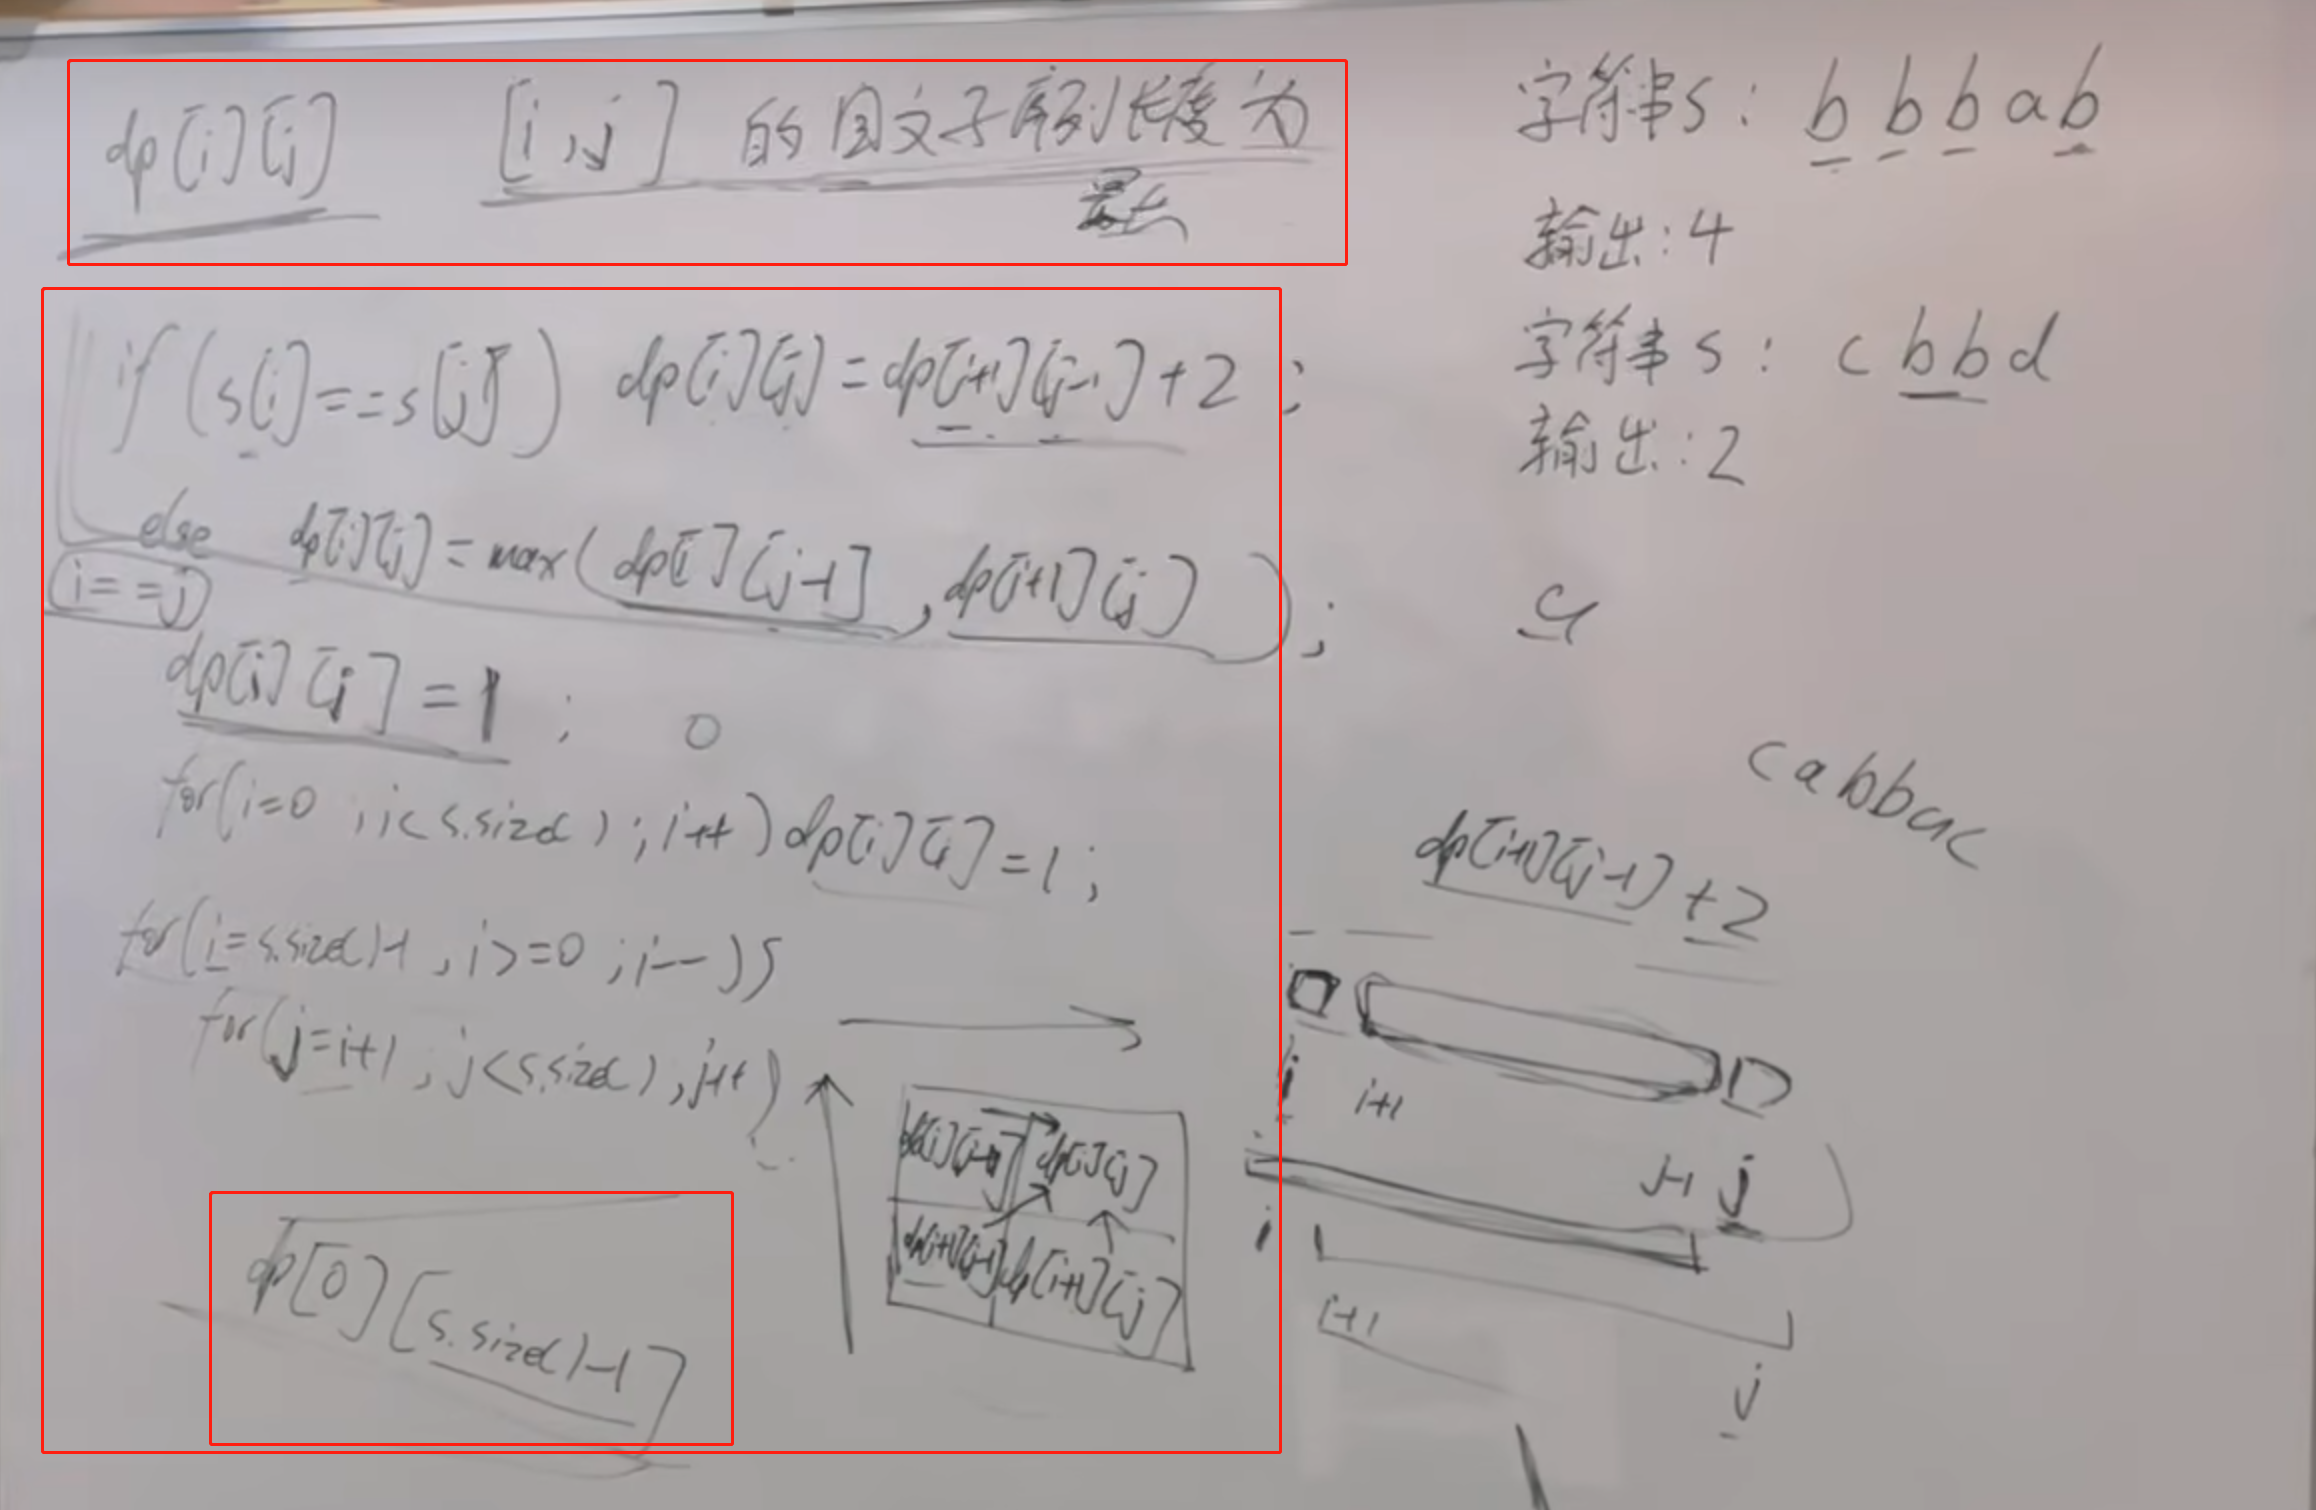 dp[i][j] [i,j]的回文子序列长度为
最长
if(s[i]==s[j]) dp[i][j]=dp[i+1][j-1]+2;
else dp[i][j]=max(dp[i][j-1],dp[i+1][j]);
i==j
dp[i][j]=1; 0
for(i=0;i<s.size();i++)dp[i][i]=1;
for(i=s.size()-1,i>=0;i--){
for(j=i+1,j<s.size(),j++)
dp[0][s.size()-1]
dp[i][j-1] dp[i][j]
dp[i+1][j-1] dp[i+1][j]
字符串s: bbbab
输出:4
字符串s: cbbd
输出:2
cabbac
dp[i+1][j-1]+2
i i+1
j-1 j
i
i+1
j